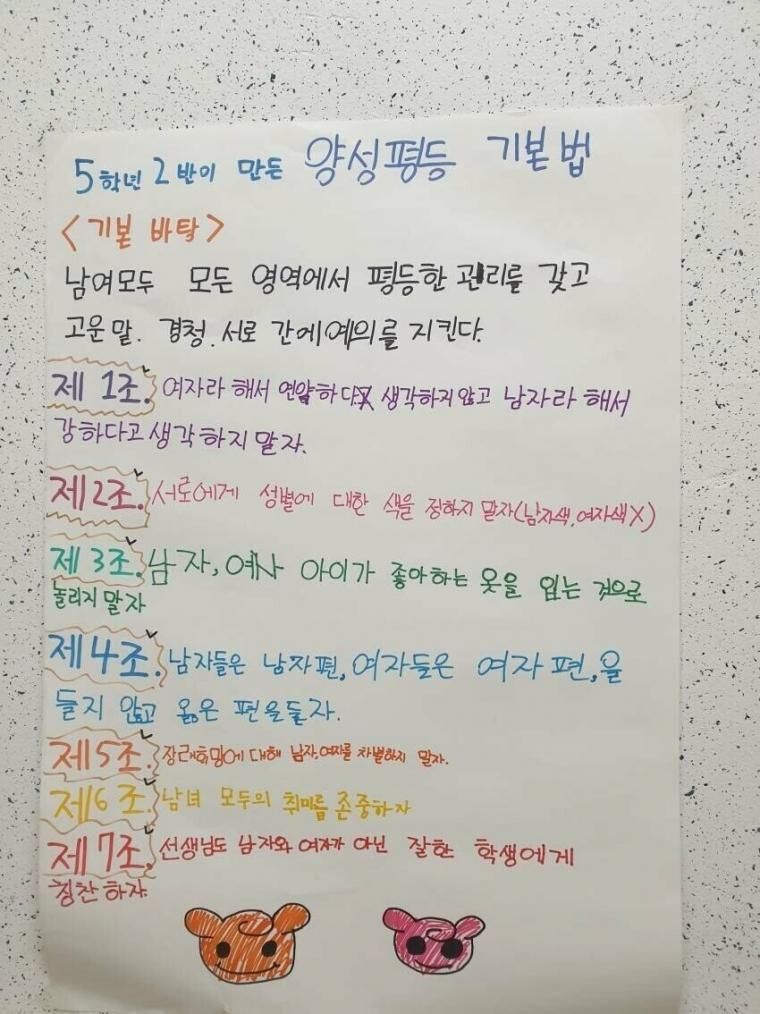 5학년 2반이 만든 양성평등 기본법
<기본 바탕>
남여모두 모든 영역에서 평등한 권리를 갖고
고운말. 경청. 서로 간에예의를 지킨다.
제 1조. 여자라 해서 연약하다 생각하지않고 남자라 해서
강하다고생각하지 말자.
제2조. 서로에게 성별에 대한 색을 정하지 말자(남자색, 여자색X)
제 3조. 남자, 여자 아이가 좋아하는 옷을 입는 것으로
놀리지말자
제4조. 남자들은 남자편, 여자들은 여자편,을
들지 않고 옳은 편을들자.
제5조. 장래희망에 대해 남자,여자를 차별하지 말자.
제6조. 남녀 모두의 취미를 존중하자
제7조. 선생님도 남자와 여자가 아닌 잘한 학생에게
칭찬하자.